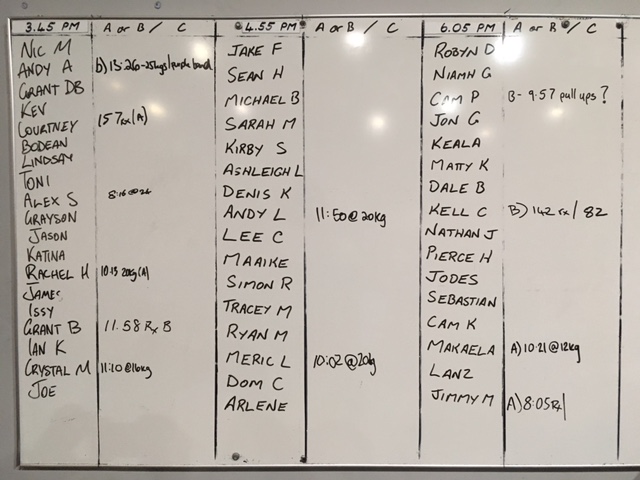 3.45 PM A or B / C
Nic M
Andy A b) 13:26-25kgs/purple band
Grant DB
Kev
Courtney 157rx(A)
Bodean
Lindsay
Toni
Alex S 8:16@24
Grayson
Jason
Katina
Rachel H 10:15 20kg(A)
James
Issy
Grant B 11.58 Rx B
Ian K
Crystal M 11:10@16kg
Joe
4.55 PM A or B / C
Jake F
Sean H
Michael B
Sarah M
Kirby S
Ashleigh L
Denis K
Andy L 11:50@20kg
Lee C
Maaike
Simon R
Tracey M
Ryan M
Meric L 10:02@20kg
Dom C
Arlene
6.05 PM A or B / C
Robyn D
Niamh G
Cam P B- 9:57 pull ups?
Jon G
Keala
Matty K
Dale B
Kell C B) 142 rx/ 82
Nathan J
Pierce H
Jodes
Sebastian
Cam K
Makaela A) 10:21@12kg
Lanz
Jimmy M A) 8:05Rx/